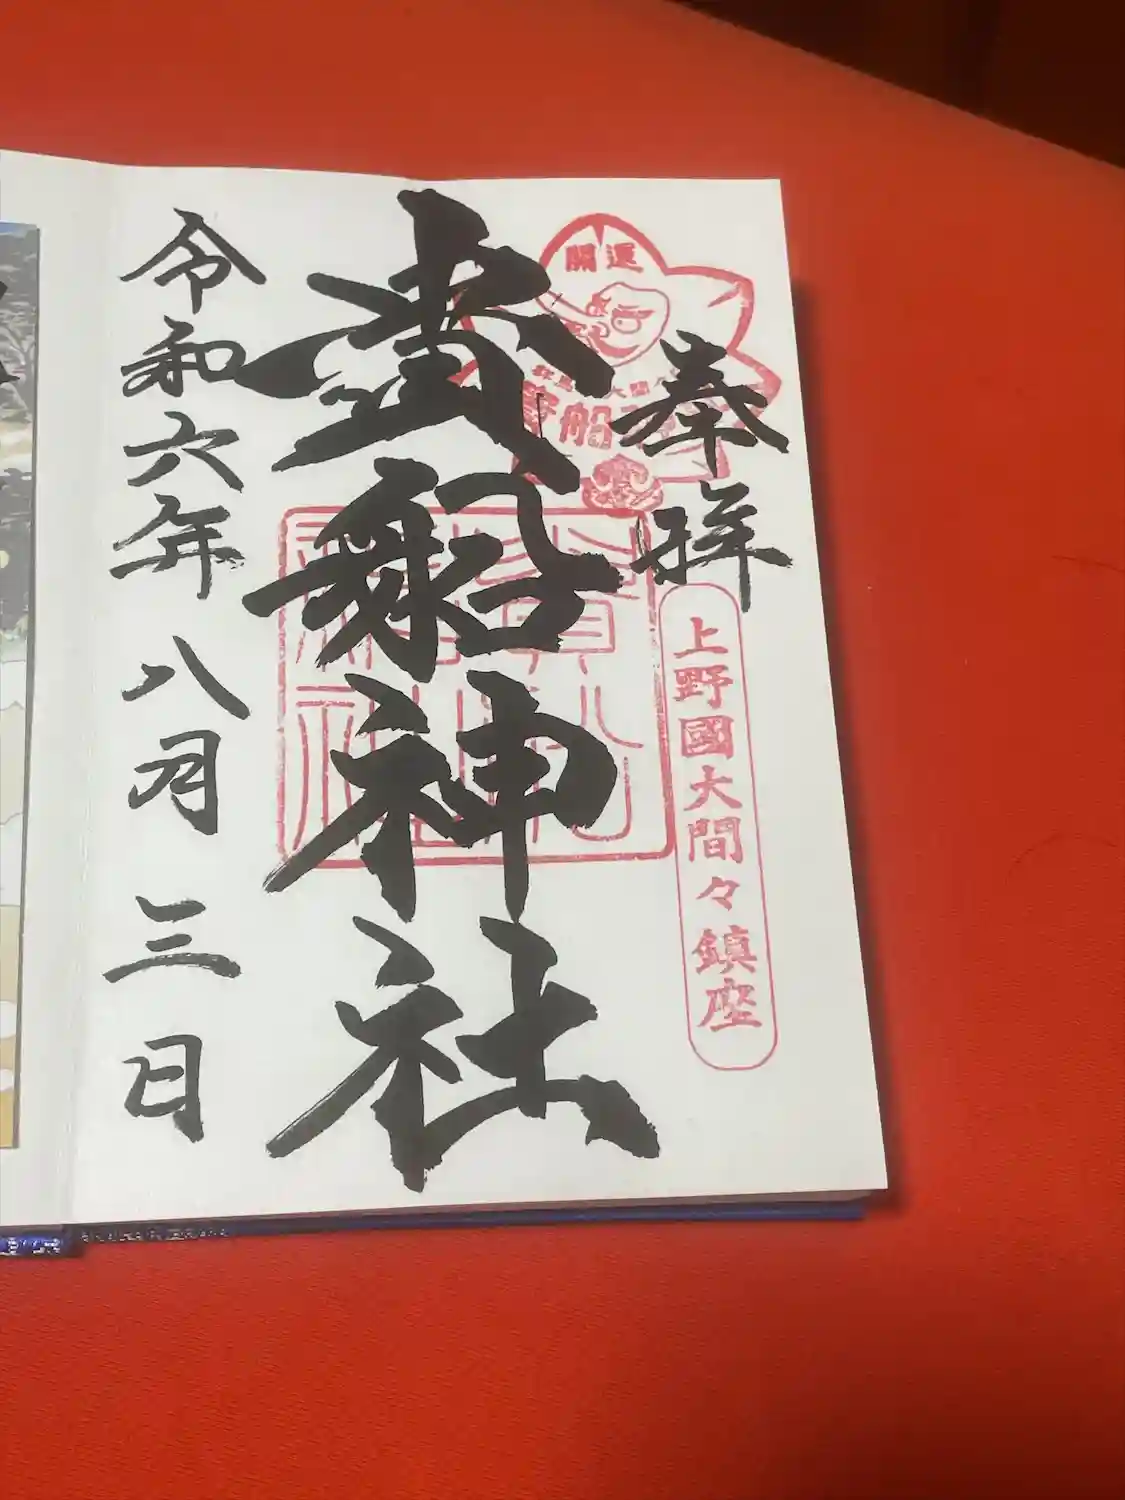 奉拝
開運
上野國大間々鎮座
貴船神社
令和六年八月三日